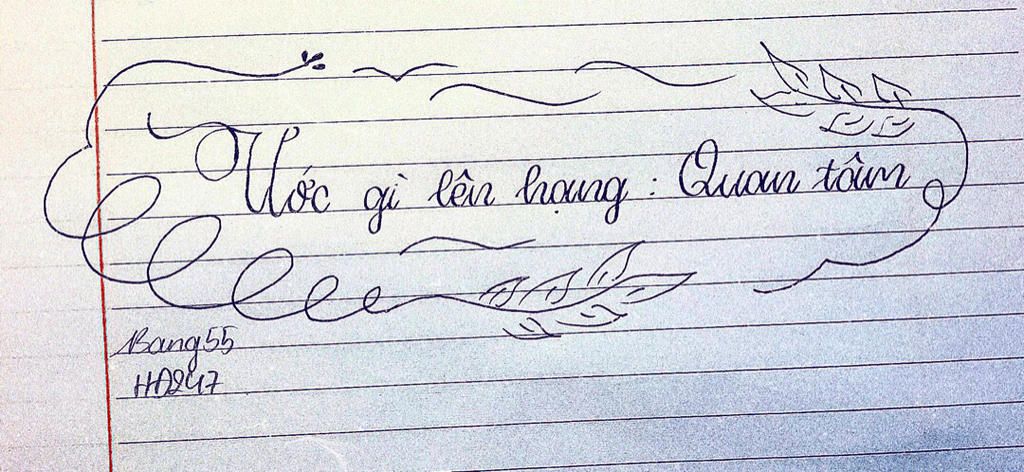 Ước gì lên hạng : Quan tâm
Bang55
HA247